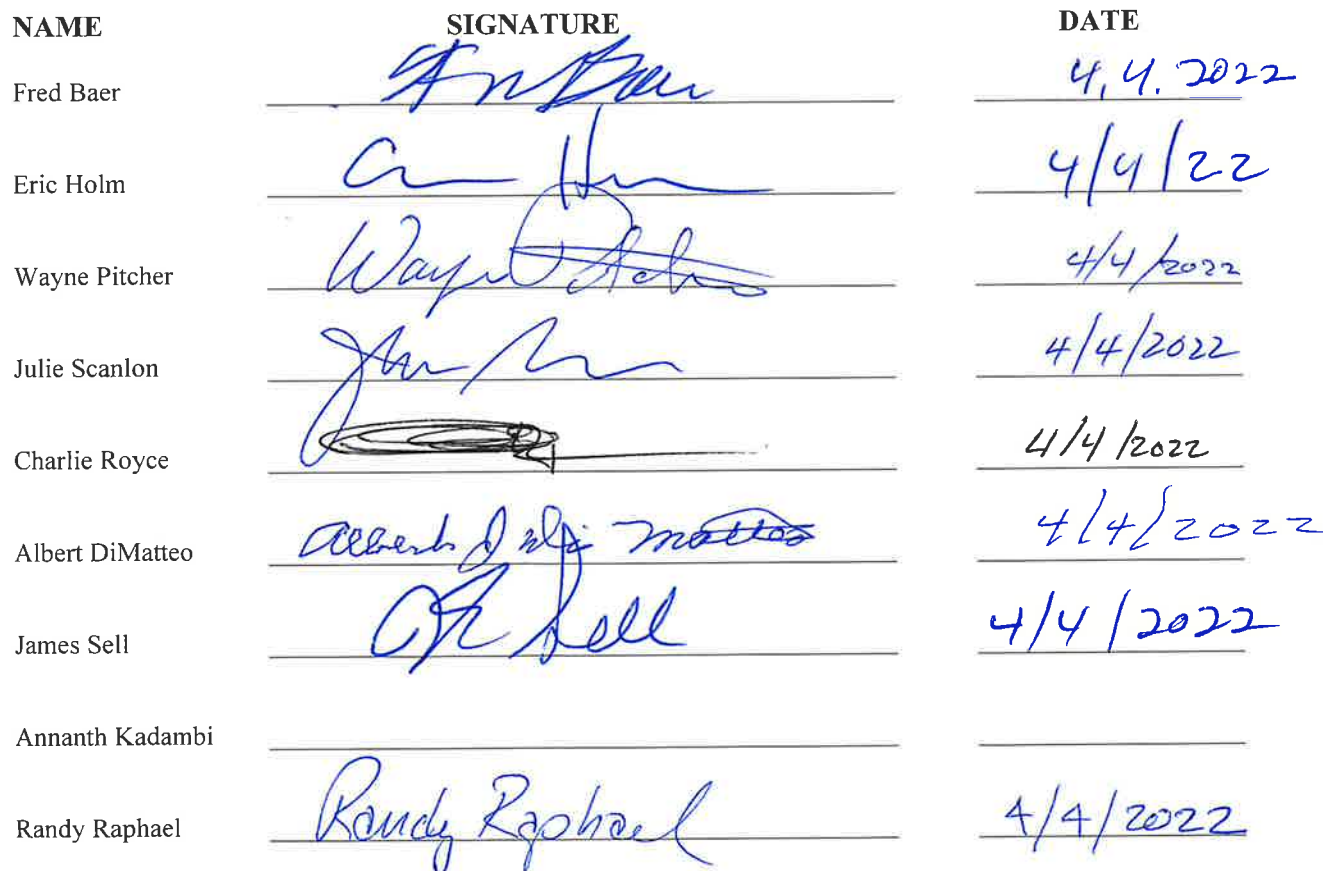 NAME SIGNATURE DATE
Fred Baer Baer 4, 4. 2022
Eric Holm 4/4/22
Wayne Pitcher Wayne 4/4/2022
Julie Scanlon 4/4/2022
Charlie Royce 4/4/2022
Albert DiMatteo Albert matteo 4/4/2022
James Sell Sell 4/4/2022
Annanth Kadambi
Randy Raphael Randy Raphael 4/4/2022